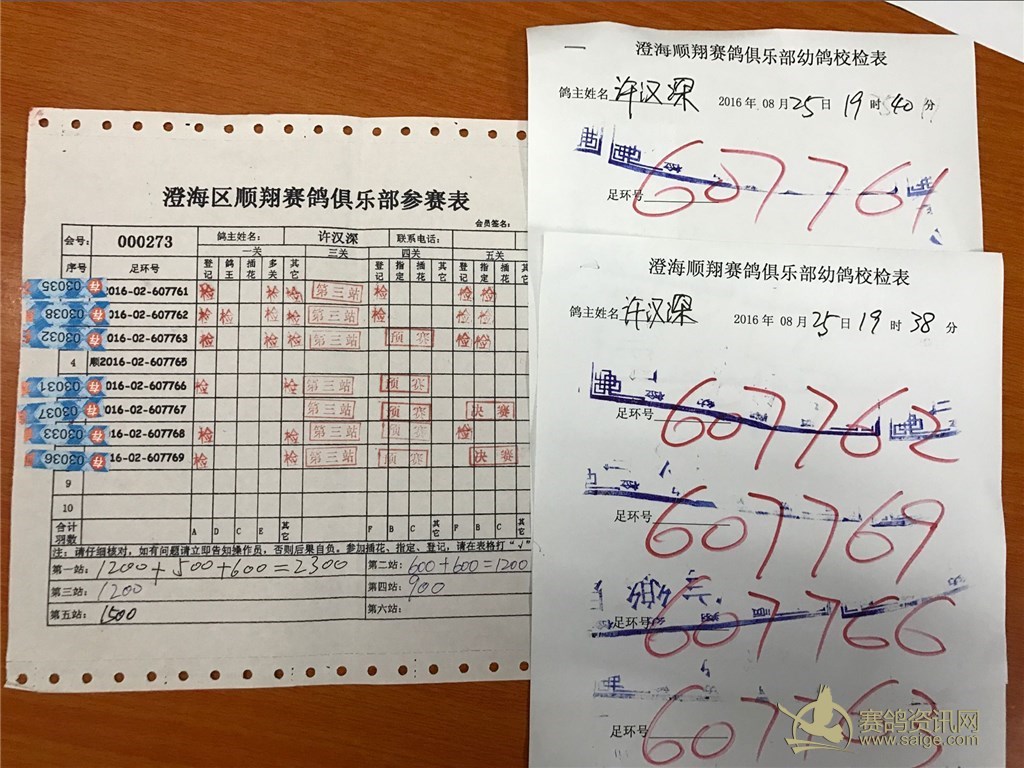 澄海区顺翔赛鸽俱乐部参赛表
会员签名:
会号: 000273 鸽主姓名: 许汉深 联系电话:
一关 三关 四关 五关
序号 足环号 登记 鸽王 插花 多关 其它 登记 指定 插花 其它 登记 指定 插花 其它
03035 存 016-02-607761 检 检 检 第三站 检 检 检
03038 存 016-02-607762 检 检 检 检 第三站 检 检 检
03032 存 016-02-607763 检 检 检 第三站 预赛 检 检
4 顺2016-02-607765
03031 存 016-02-607766 检 检 第三站 预赛
03037 存 016-02-607767 第三站 预赛 决赛
03033 存 16-02-607768 检 检 第三站 预赛 检
03036 存 16-02-607769 检 检 第三站 预赛 决赛
9
10
合计羽数 A D C E 其它 F B C 其它 F B C 其它
注: 请仔细核对, 如有问题请立即告知操作员, 否则后果自负。参加插花、指定、登记, 请在表格打"√"
第一站: 1200+500+600=2300 第二站: 600+600=1200
第三站: 1200 第四站: 900
第五站: 1500 第六站:
澄海顺翔赛鸽俱乐部幼鸽校检表
鸽主姓名 许汉深 2016年08月25日19时40分
足环号 607761
澄海顺翔赛鸽俱乐部幼鸽校检表
鸽主姓名 许汉深 2016年08月25日19时38分
足环号 607762
足环号 607769
足环号 607766
足环号 607763
赛鸽资讯网
www.saige.com